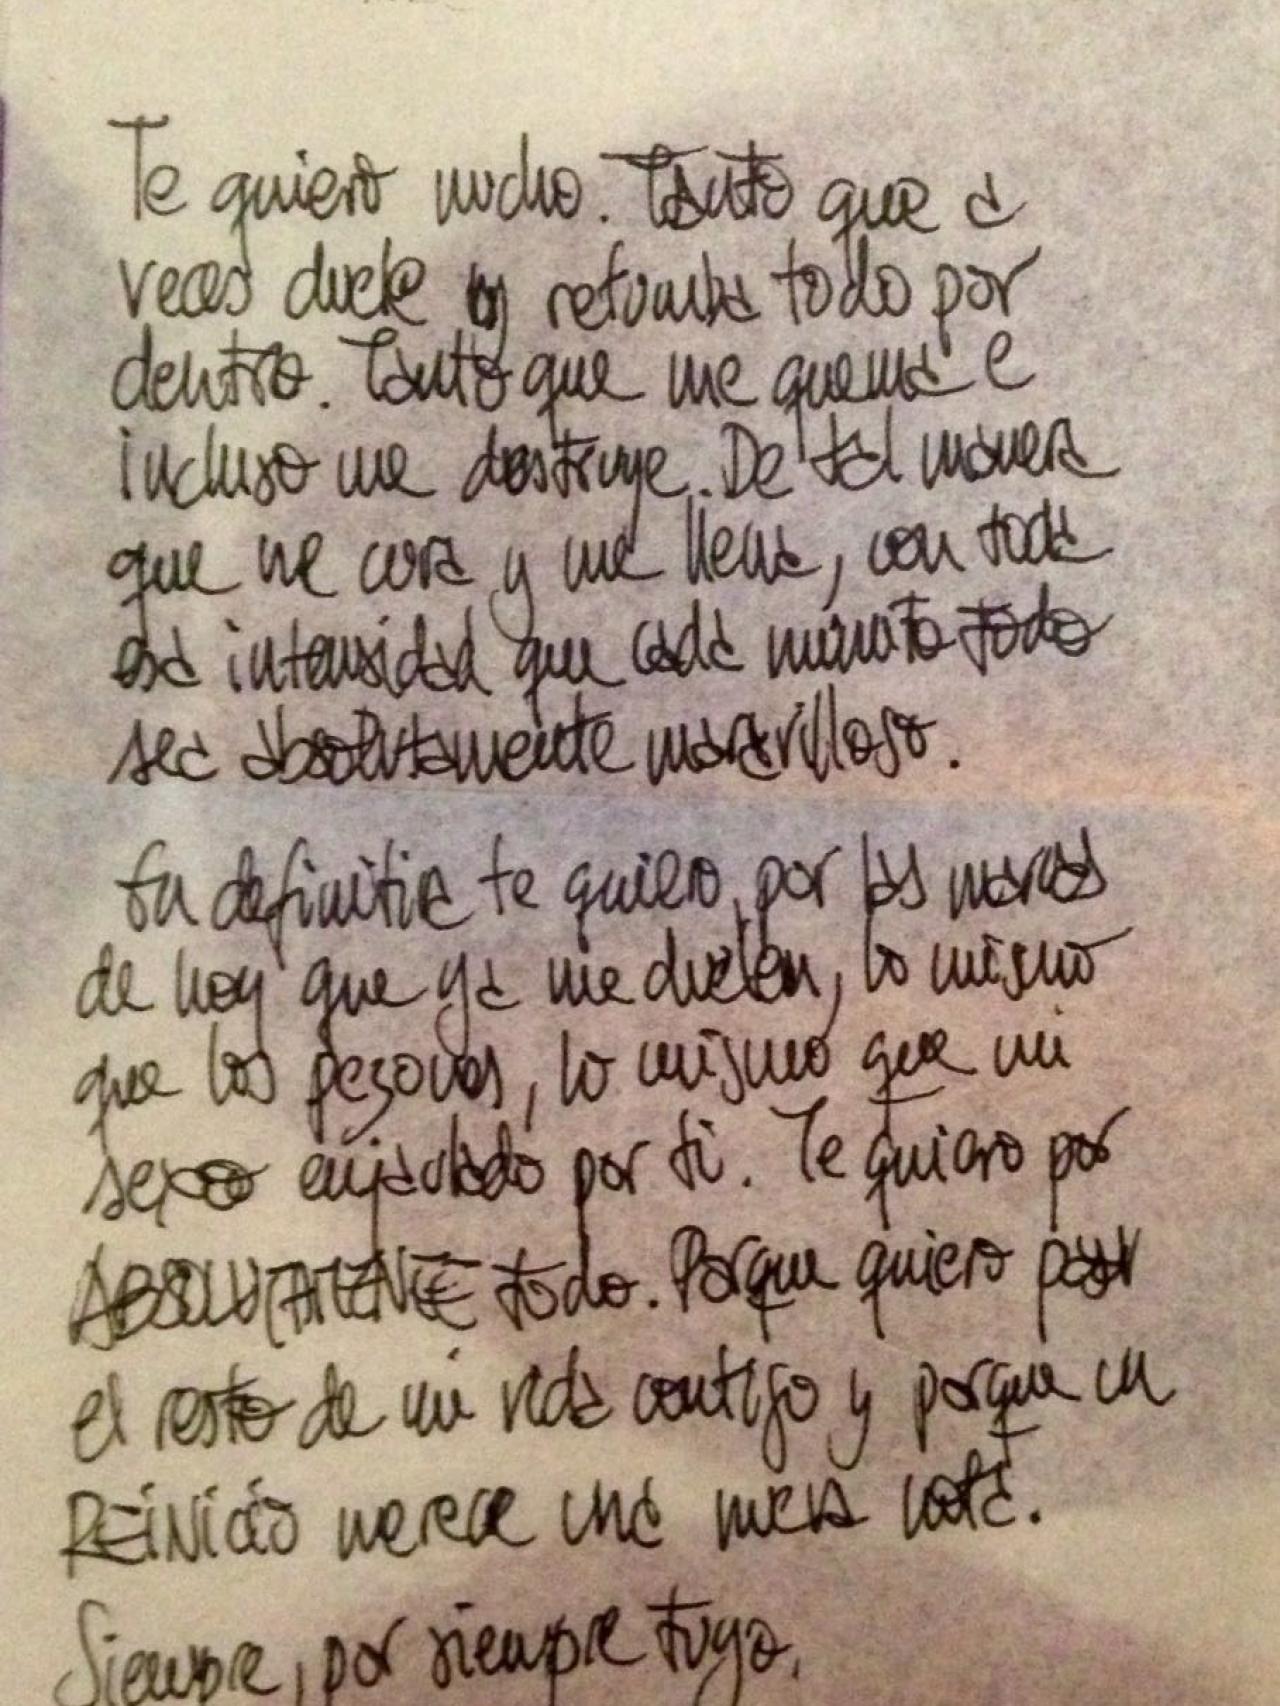 Te quiero mucho. Tanto que a
veces duele y retumba todo por
dentro. Tanto que me quema e
incluso me destruye. De tal manera
que me cura y me llena, con toda
esa intensidad que cada minuto todo
sea absolutamente maravilloso.
En definitiva te quiero, por las marcas
de hoy que ya me duelen, lo mismo
que los pezones, lo mismo que mi
sexo enjaulado por ti. Te quiero por
ABSOLUTAMENTE todo. Porque quiero pasar
el resto de mi vida contigo y porque un
REINICIO merece una nueva nota.
Siempre, por siempre tuyo.